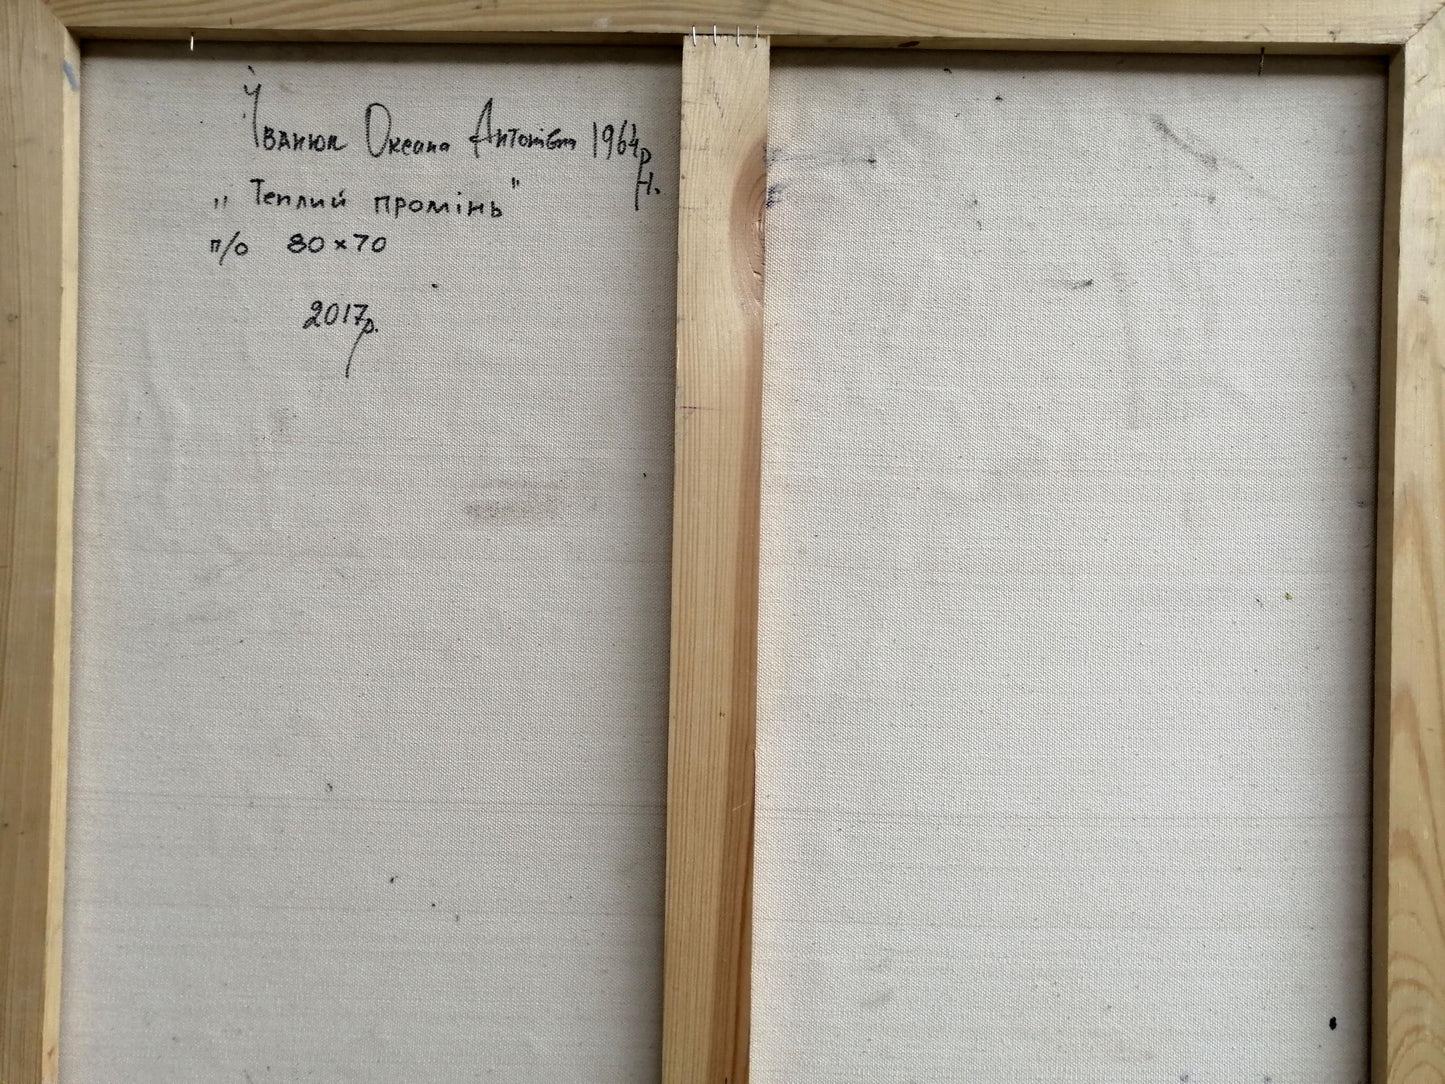 Іванюк Оксана Антонівна 1964 р.н.
„Теплий промінь"
п/о 80×70
2017р.